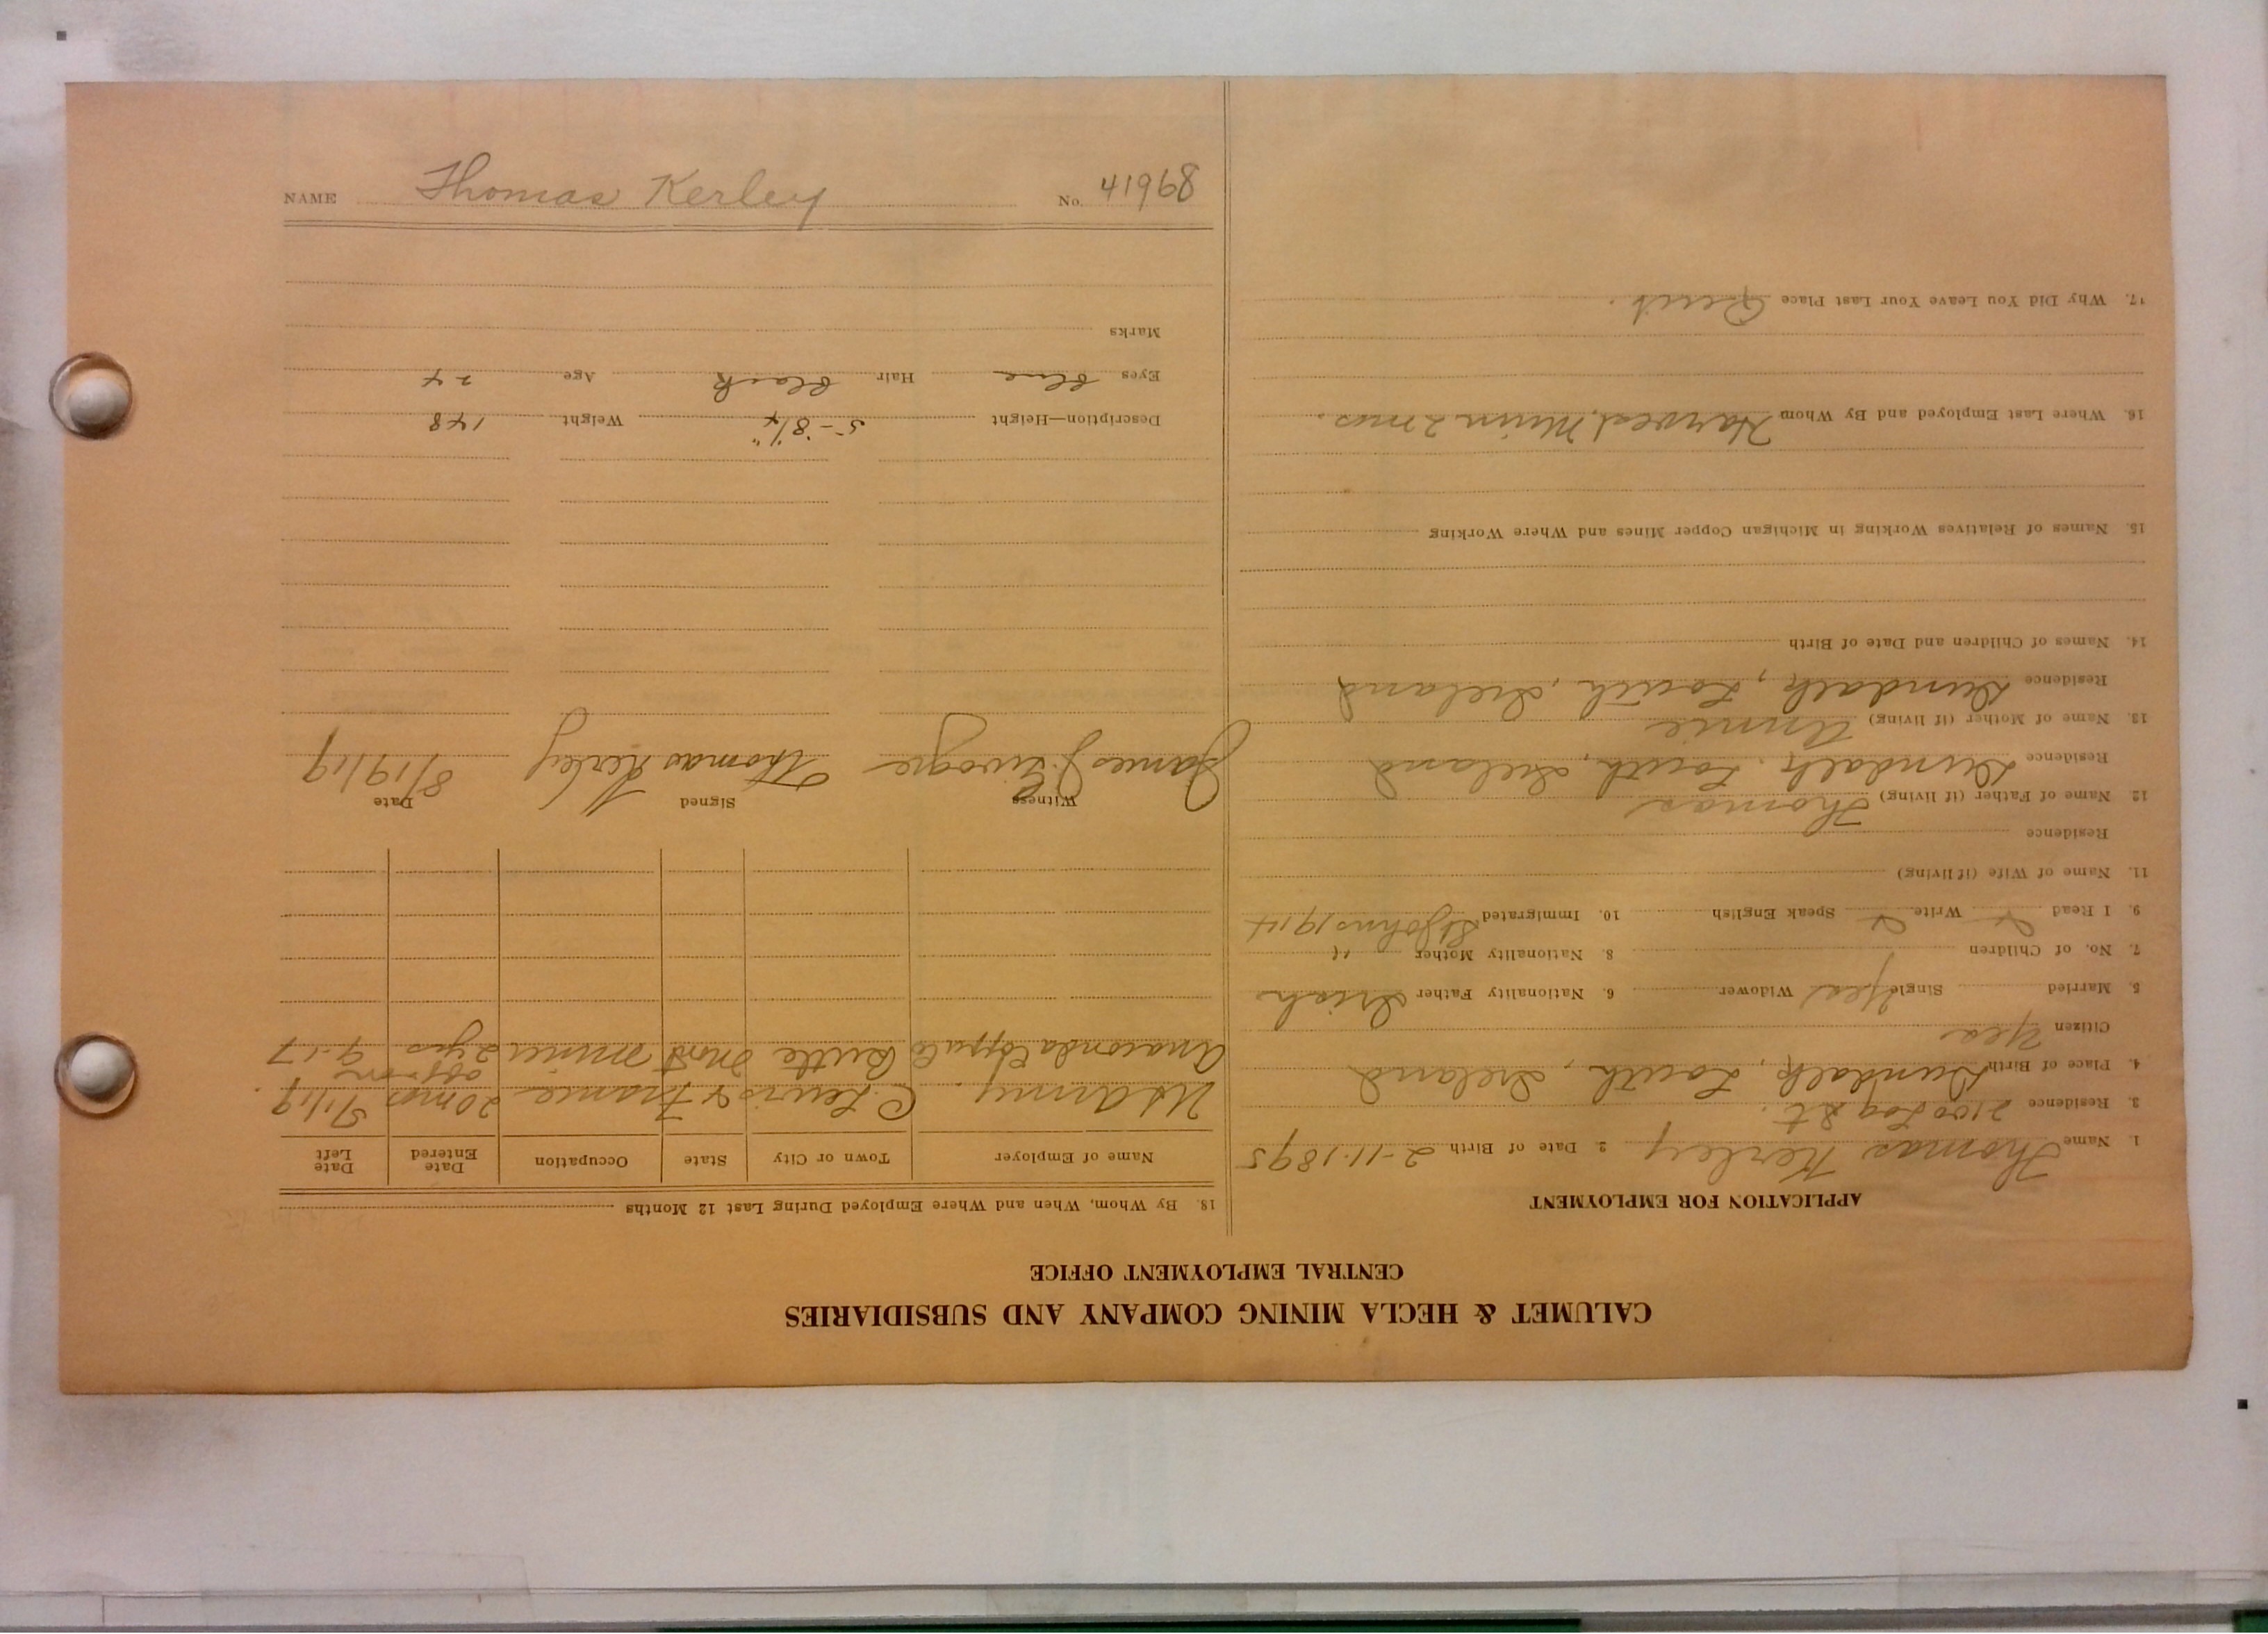 CALUMET & HECLA MINING COMPANY AND SUBSIDIARIES
CENTRAL EMPLOYMENT OFFICE
APPLICATION FOR EMPLOYMENT
1. Name Thomas Kerley 2. Date of Birth 2-11-1895
3. Residence 2100 Log St.
4. Place of Birth Dundalk, Louth, Ireland
Citizen Yes
5. Married Single Yes Widower 6. Nationality Father Irish
7. No. of Children 8. Nationality Mother "
9. I Read Write Speak English 10. Immigrated St Johns 1914
11. Name of Wife (if living)
Residence
12 Name of Father (if living) Thomas
Residence Dundalk, Louth, Ireland
13. Name of Mother (if living) Annie
Residence Dundalk, Louth, Ireland
14. Names of Children and Date of Birth
15. Names of Relatives Working in Michigan Copper Mines and Where Working
16. Where Last Employed and By Whom Harvest, Minn 2 mos.
17. Why Did You Leave Your Last Place Quit.
18. By Whom, When and Where Employed During Last 12 Months
Name of Employer Town or City State Occupation Date Entered Date Left
US Army. C. Lewis & France 20 mos 5/1/19
Anaconda Copper Co Butte Mont Miner 2 yrs 9-17
Witness Signed Date
James J. Thomas Kerley 8/19/19
Description—Height 5-8 1/4" Weight 148
Eyes Blue Hair Black Age 24
Marks
NAME Thomas Kerley No. 41968